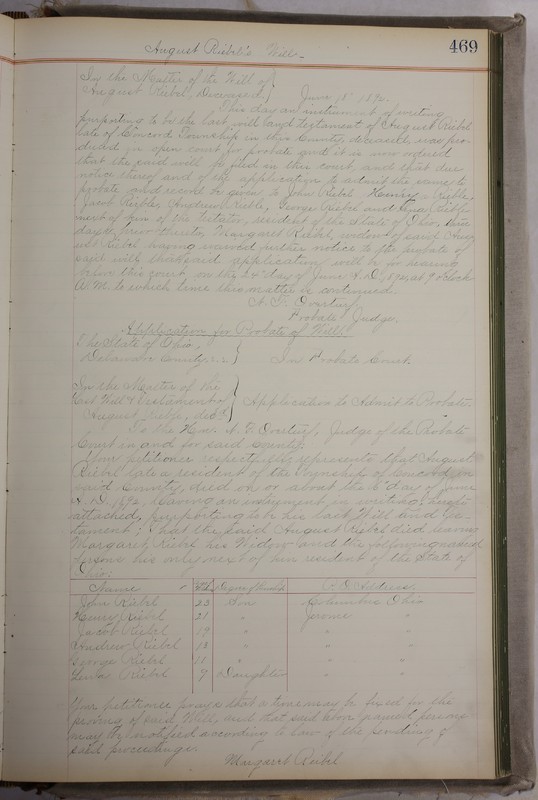 469
August Riebel's Will
In the Matter of the Will of
August Riebel, Deceased. } June 18 1892.
This day an instrument of writing
purporting to be the last will and testament of August Riebel
late of Concord Township in this County, deceased, was pro-
duced in open court for probate and it is now ordered
that the said will be filed in this court, and that due
notice thereof and of the application to admit the same to
probate and record be given to John Riebel, Henry Riebel,
Jacob Riebel, Andrew Riebel, George Riebel and Lena Riebel
next of kin of the testator, resident of the State of Ohio, three
days, hereafter. Margaret Riebel, widow of said Aug-
ust Riebel having waived further notice of the probate of
said will the said application will be for hearing
before this court on the 24" day of June A.D. 1892, at 9 o'clock
A.M. to which time this matter is continued.
A. F. Overturf,
Probate Judge.
Application for Probate of Will.
The State of Ohio,
Delaware County, ss. } In Probate Court.
In the Matter of the
Last Will & Testament of
August Riebel, decd. } Application to Admit to Probate.
To the Hon. A. F. Overturf, Judge of the Probate
Court in and for said County:
Your petitioner respectfully represents that August
Riebel late a resident of the Township of Concord, in
said County, died on or about the 6" day of June
A.D. 1892, leaving an instrument in writing, hereto
attached, purporting to be his last Will and Tes-
tament; that the said August Riebel died leaving
Margaret Riebel his Widow and the following named
persons his only next of kin resident of the State of
Ohio:
Name Age Degree of Kinship P.O. Address.
John Riebel 23 Son Columbus Ohio
Henry Riebel 21 " Jerome "
Jacob Riebel 19 " " "
Andrew Riebel 13 " " "
George Riebel 11 " " "
Lena Riebel 9 Daughter " "
Your petitioner prays that a time may be fixed for the
proving of said Will, and that said above named persons
may be notified according to law of the pendency of
said proceedings.
Margaret Riebel